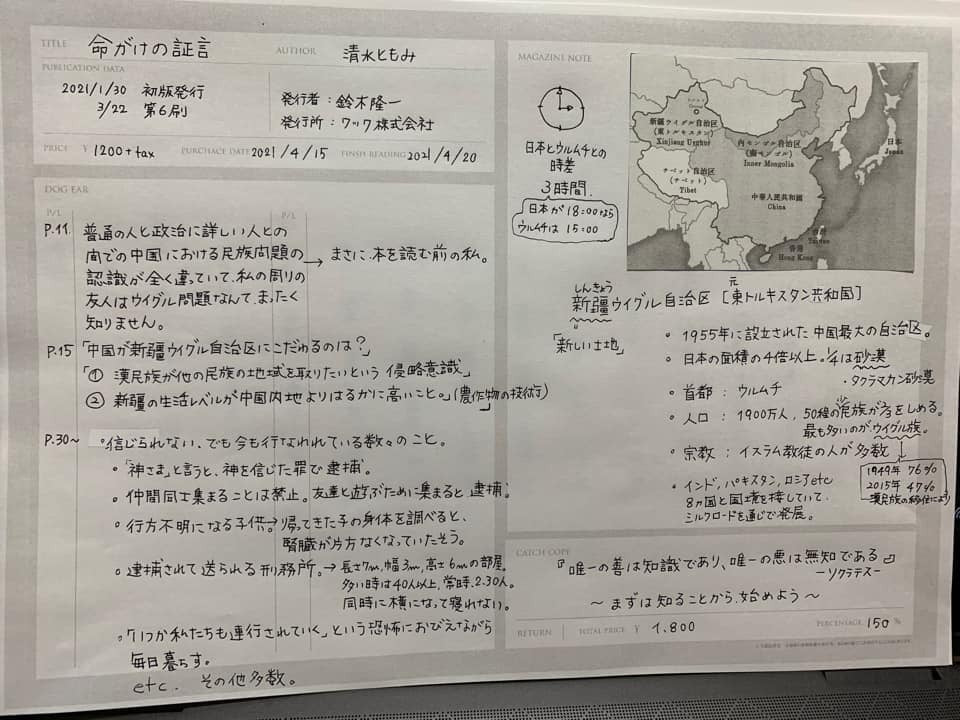 TITLE 命がけの証言
AUTHOR 清水ともみ
PUBLICATION DATA
2021/1/30 初版発行
3/22 第6刷
発行者：鈴木隆一
発行所：ワック株式会社
PRICE ¥ 1200+tax PURCHACE DATE 2021/4/15 FINSH READING 2021/4/20
DOG EAR
P/L
P/L
P.11 普通の人と政治に詳しい人との
間での中国における民族問題の
認識が全く違っていて、私の周りの
友人はウイグル問題なんて、まったく
知りません。
→ まさに、本を読む前の私。
P.15 「中国が新疆ウイグル自治区にこだわるのは？」
「① 漢民族が他の民族の地域を取りたいという 侵略意識」
② 新疆の生活レベルが中国内地よりはるかに高いこと。」(農作物の技術)
P.30~ 。信じられない、でも今も行なわれている数々のこと。
・「神さま」と言うと、神を信じた罪で逮捕。
・仲間同士集まることは禁止。友達と遊ぶために集まると逮捕。
・行方不明になる子供。→帰ってきた子の身体を調べると、
腎臓が片方なくなっていたそう。
・逮捕されて送られる刑務所。→長さ7m,幅3m,高さ6mの部屋。
多い時は40人以上,常時.2.30人。
同時に横になって寝れない。
。「いつか私たちも連行されていく」という恐怖におびえながら
毎日暮らす。
etc. その他多数。
MAGAZINE NOTE
日本とウルムチとの
時差
3時間.
日本が18:00なら
ウルムチは 15:00
新疆ウイグル自治区
(東トルキスタン)
Xinjiang Uyghur
内モンゴル自治区
(南モンゴル)
Inner Mongolia
チベット自治区
(チベット)
Tibet
中華人民共和国
China
日本
Japan
台湾
Taiwan
香港
Hong Kong
しんきょう
元
新疆ウイグル自治区 [東トルキスタン共和国]
「新しい土地」
・1955年に設立された中国最大の自治区。
・日本の面積の4倍以上。1/4は砂漠
・タクラマカン砂漠
・首都：ウルムチ
・人口：1900万人，50種の民族が占をしめる。
最も多いのがウイグル族。
・宗教：イスラム教徒の人が多数
1949年 76%
2015年 47%
漢民族の移住により
・インド，パキスタン，ロシアetc
8ヵ国と国境を接していて、
シルクロードを通じで発展。
CATCH COPY
『唯一の善は知識であり、唯一の悪は無知である』
ーソクラテスー
〜まずは知ることから、始めよう〜
RETURN TOTAL PRICE ¥ 1.800 PERCENTAGE 150 %